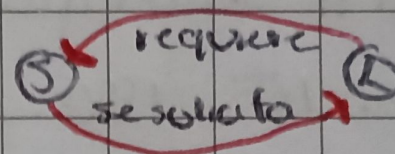 requiere
S
se solicita